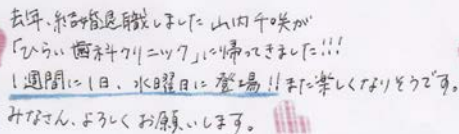 去年、結婚退職しました 山内千咲が
「ひらい歯科クリニック」に帰ってきました!!!
1週間に1日、水曜日に登場!!また楽しくなりそうです。
みなさん、よろしくお願いします。